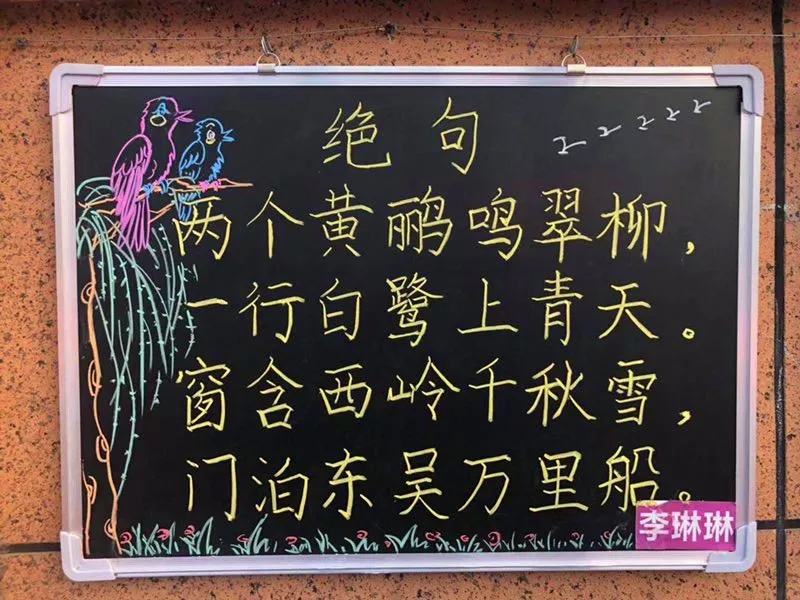 绝句
两个黄鹂鸣翠柳，
一行白鹭上青天。
窗含西岭千秋雪，
门泊东吴万里船。
李琳琳